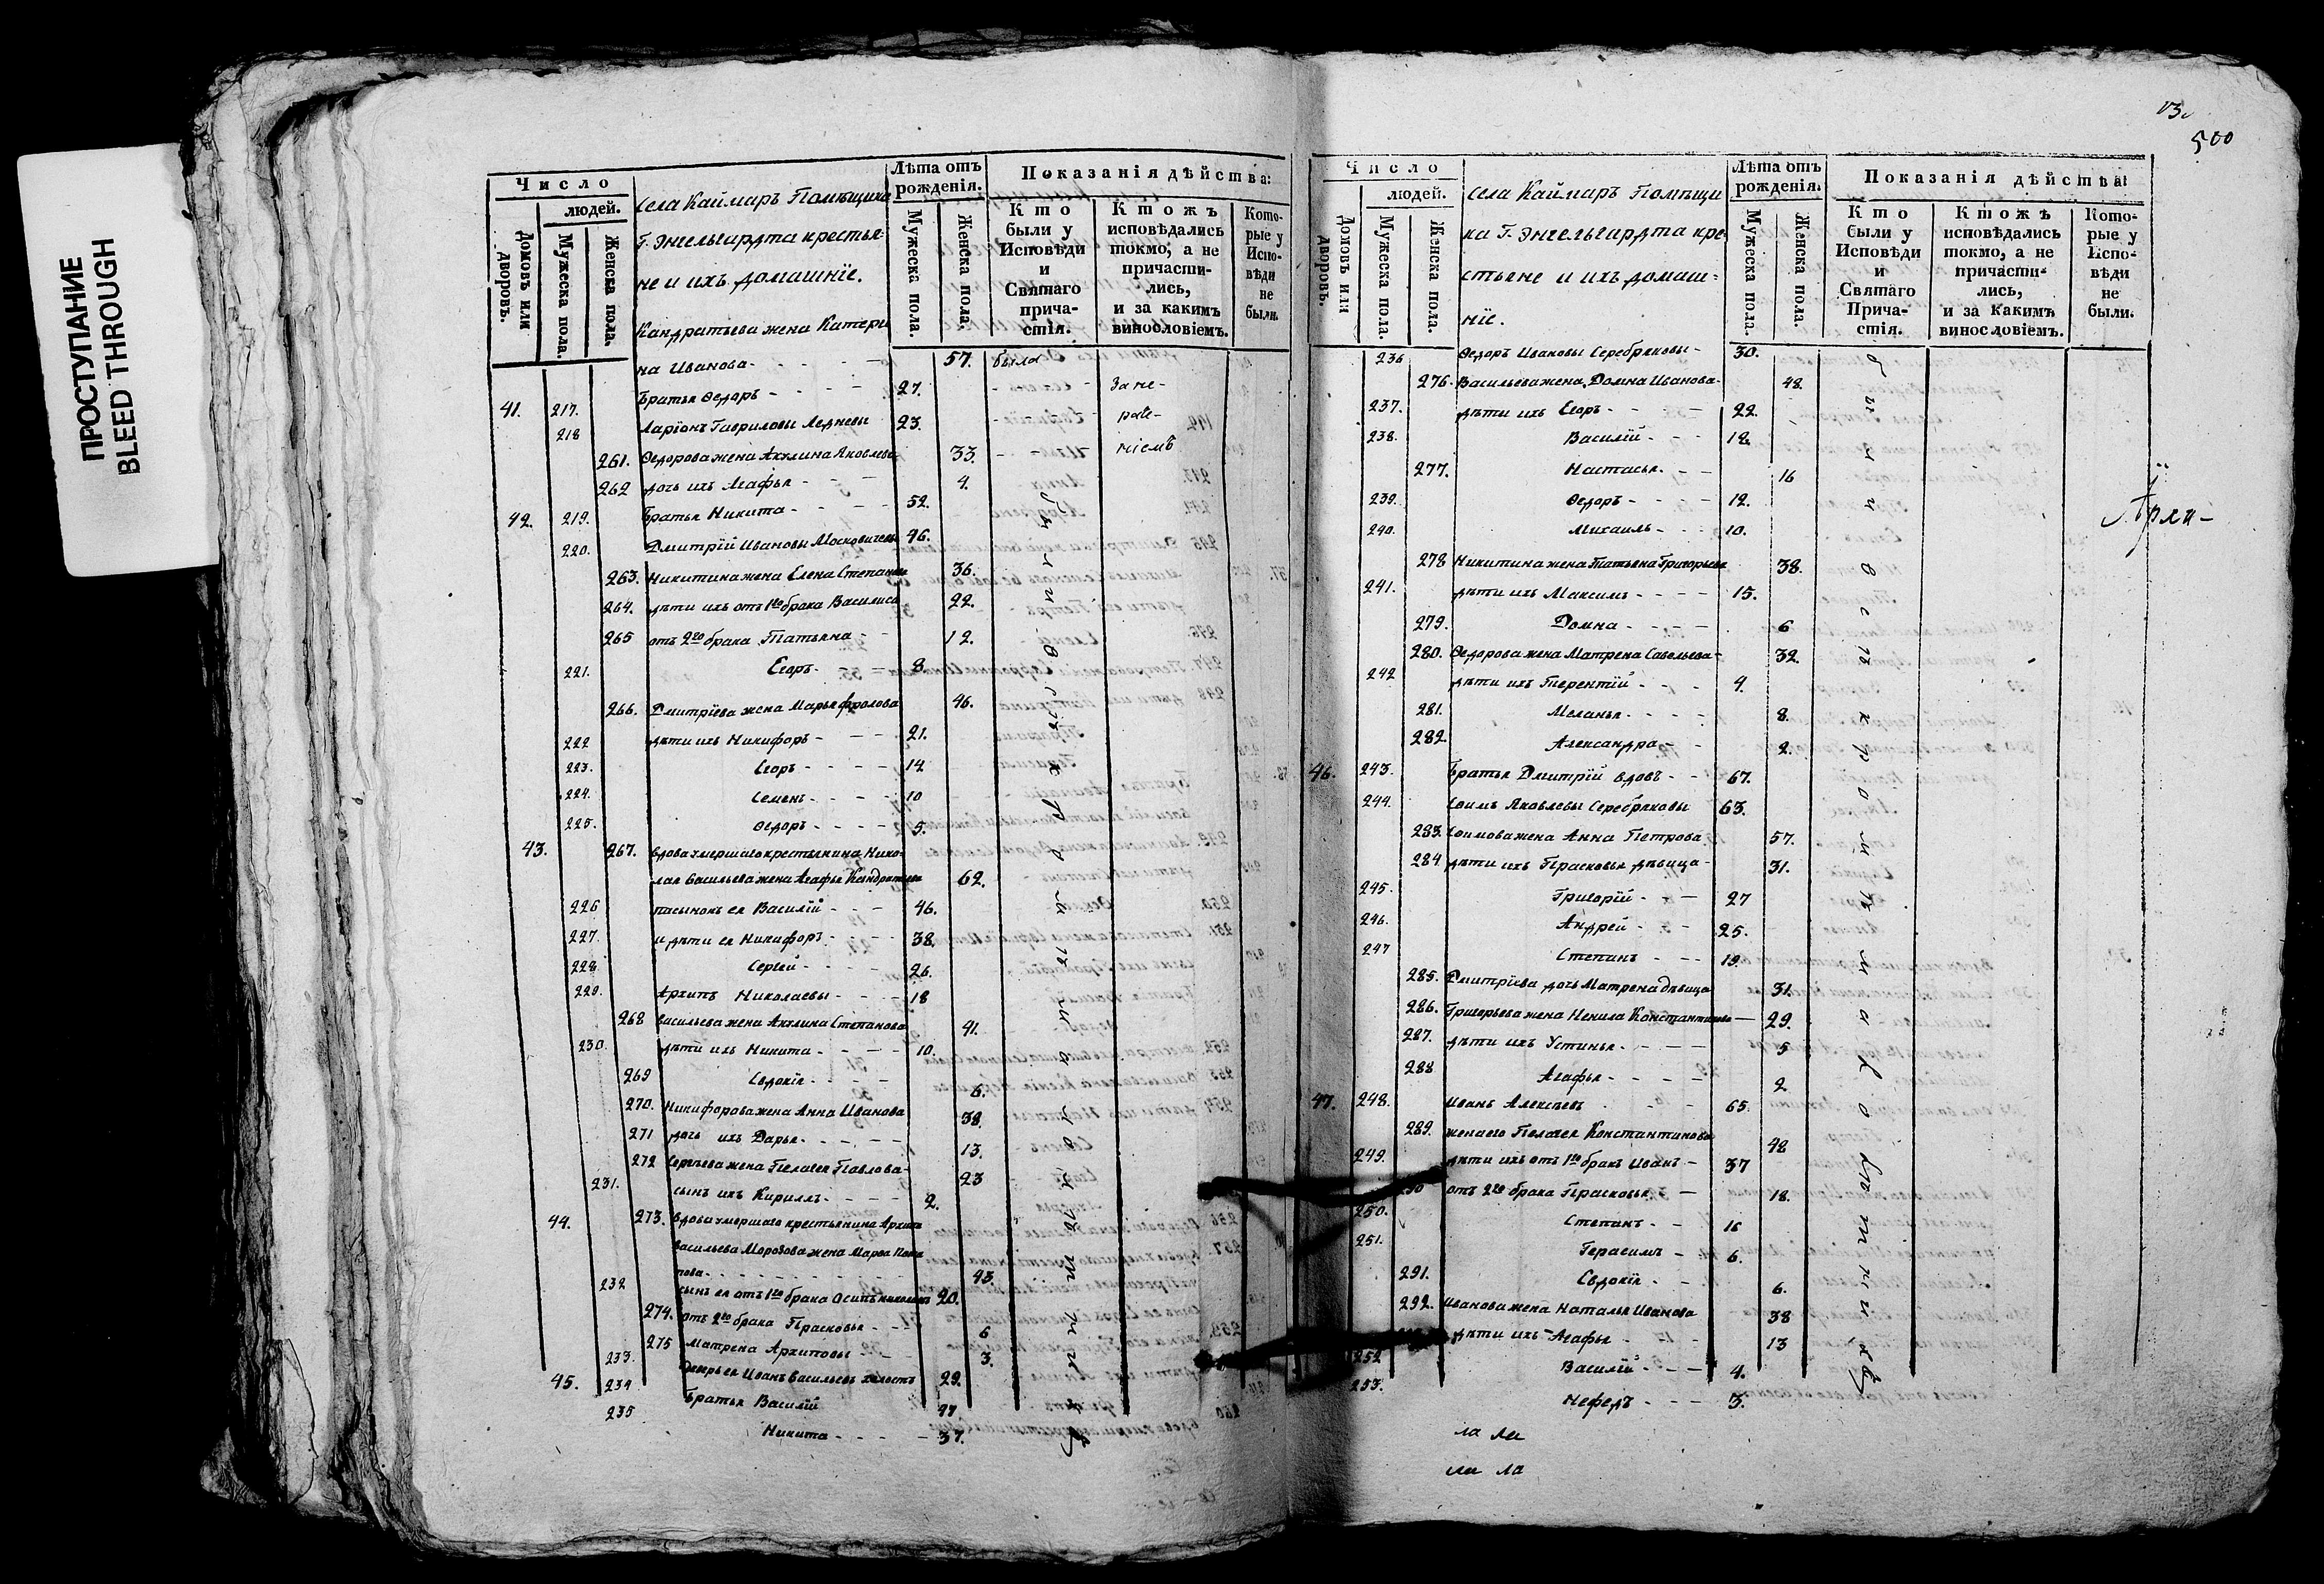 ПРОСТУПАНИЕ
BLEED THROUGH
Число
людей.
Домовъ или дворовъ.
Мужеска пола.
Женска пола.
Села Каймаръ Помѣщика
Г. Энгельгардта крестья-
не и ихъ домашнїе.
Лѣта отъ рожденія.
Мужеска пола.
Женска пола.
Показанія дѣйства:
Кто были у Исповѣди и Святаго причастія.
Ктожъ исповѣдались токмо, а не причастились, и за какимъ винословіемъ.
Которые у Исповѣди не были.
Кандратьева жена Катери
на Иванова - 57. была
41. 217. Братья Ѳедоръ - 27. За не-
218 Ларїонъ Гавриловы Ледневы 23. раче-
261. Ѳедорова жена Акулина Яковлева 33. нїемъ
262 дочь ихъ Агафья - 4.
42. 219. Братья Никита - 52.
220. Дмитрїй Ивановы Московичевы 46.
263. Никитина жена Елена Степанова 36.
264. дѣти ихъ отъ 1го брака Василиса 22.
265 отъ 2го брака Татьяна - 12.
221. Егоръ - 8.
266. Дмитрїева жена Марья Фролова 46.
222 дѣти ихъ Никифоръ - 21.
223. Егоръ - 14
224. Семенъ - 10
225. Ѳедоръ - 5.
43. 267. вдова умершаго крестьянина Нико-
лая Васильева жена Агафья Кандратьева 62.
226 пасынокъ ея Василїй - 46.
227. и дѣти ея Никифоръ - 38.
228 Сергѣй - 26.
229. Архипъ Николаевы - 18
268 Васильева жена Акулина Степанова 41.
230. дѣти ихъ Никита - 10.
269 Евдокїя - 6.
270. Никифорова жена Анна Иванова 38.
271 дочь ихъ Дарья - 13.
272 Сергѣева жена Пелагея Павлова - 23
231. сынъ ихъ Кириллъ - 2.
44. 273. вдова умершаго крестьянина Архипа
Васильева Морозова жена Марѳа Пота
пова - 43.
232 сынъ ея отъ 1го брака Осипъ Николаевъ 20.
274. отъ 2го брака Прасковья - 6
275 Матрена Архиповы - 3.
233. Деверь ея Иванъ Васильевъ холостъ 29.
45. 234 Братья Василїй 47.
235 Никита - 37.
были в сѣ кромѣ малолѣтнихъ
13.
500
Число
людей.
Домовъ или дворовъ.
Мужеска пола.
Женска пола.
Села Каймаръ Помѣщи
ка Г. Энгельгардта кре-
стьяне и ихъ домаш-
нїе.
Лѣта отъ рожденія.
Мужеска пола.
Женска пола.
Показанія дѣйства:
Кто были у Исповѣди и Святаго Причастія.
Ктожъ исповѣдались токмо, а не причастились, и за какимъ винословіемъ.
Которые у Исповѣди не были.
236 Ѳедоръ Ивановы Серебряковы - 30.
276. Васильева жена Домна Иванова - 48.
237. дѣти ихъ Егоръ - 22.
238. Василїй - 18.
277. Настасья - 16
239. Ѳедоръ - 12.
240. Михаилъ - 10.
278 Никитина жена Татьяна Григорьева 38.
241. дѣти ихъ Максимъ - 15.
279. Домна - 6
280. Ѳедорова жена Матрена Савельева - 32.
242 дѣти ихъ Терентїй - 4.
281. Меланья - 8.
282. Александра - 2.
46. 243. Братья Дмитрїй вдовъ - 67.
244. Ефимъ Яковлевы Серебряковы 63.
283. Ефимова жена Анна Петрова 57.
284 дѣти ихъ Прасковья дѣвица - 31.
245. Григорїй - 27
246. Андрей - 25.
247 Степанъ - 19.
285. Дмитрїева дочь Матрена дѣвица 31.
286. Григорьева жена Ненила Константинова - 29.
287. дѣти ихъ Устинья - 5
288 Агафья - 2
47. 248. Иванъ Алексѣевъ - 65.
289. жена его Пелагея Константинова 48
249. дѣти ихъ отъ 1го брака Иванъ - 37
290 отъ 2го брака Прасковья - 18.
250. Степанъ - 16
251. Герасимъ - 6.
291. Евдокїя - 6.
292. Иванова жена Наталья Иванова 38
дѣти ихъ Агафья - 13
252 Василїй - 4.
253. Нефедъ - 3.
были всѣ кромѣ малолѣтнихъ
Архи-